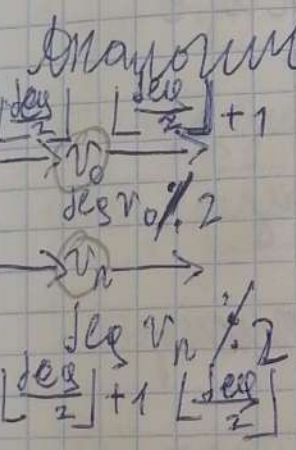 Аналогич
⌊deg/2⌋ ⌊deg/2⌋ + 1
→ v₀ →
deg v₀ ⋮̸ 2
→ vₙ →
deg vₙ ⋮̸ 2
⌊deg/2⌋ + 1 ⌊deg/2⌋